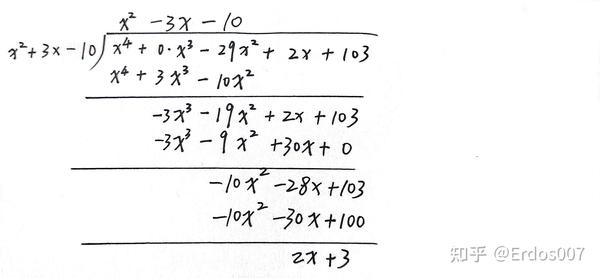 x² -3x -10
x²+3x-10)x⁴ + 0·x³ - 29x² + 2x + 103
x⁴ + 3x³ - 10x²
-3x³ - 19x² + 2x + 103
-3x³ - 9x² +30x + 0
-10x² -28x +103
-10x² -30x +100
2x +3
知乎 @Erdos007